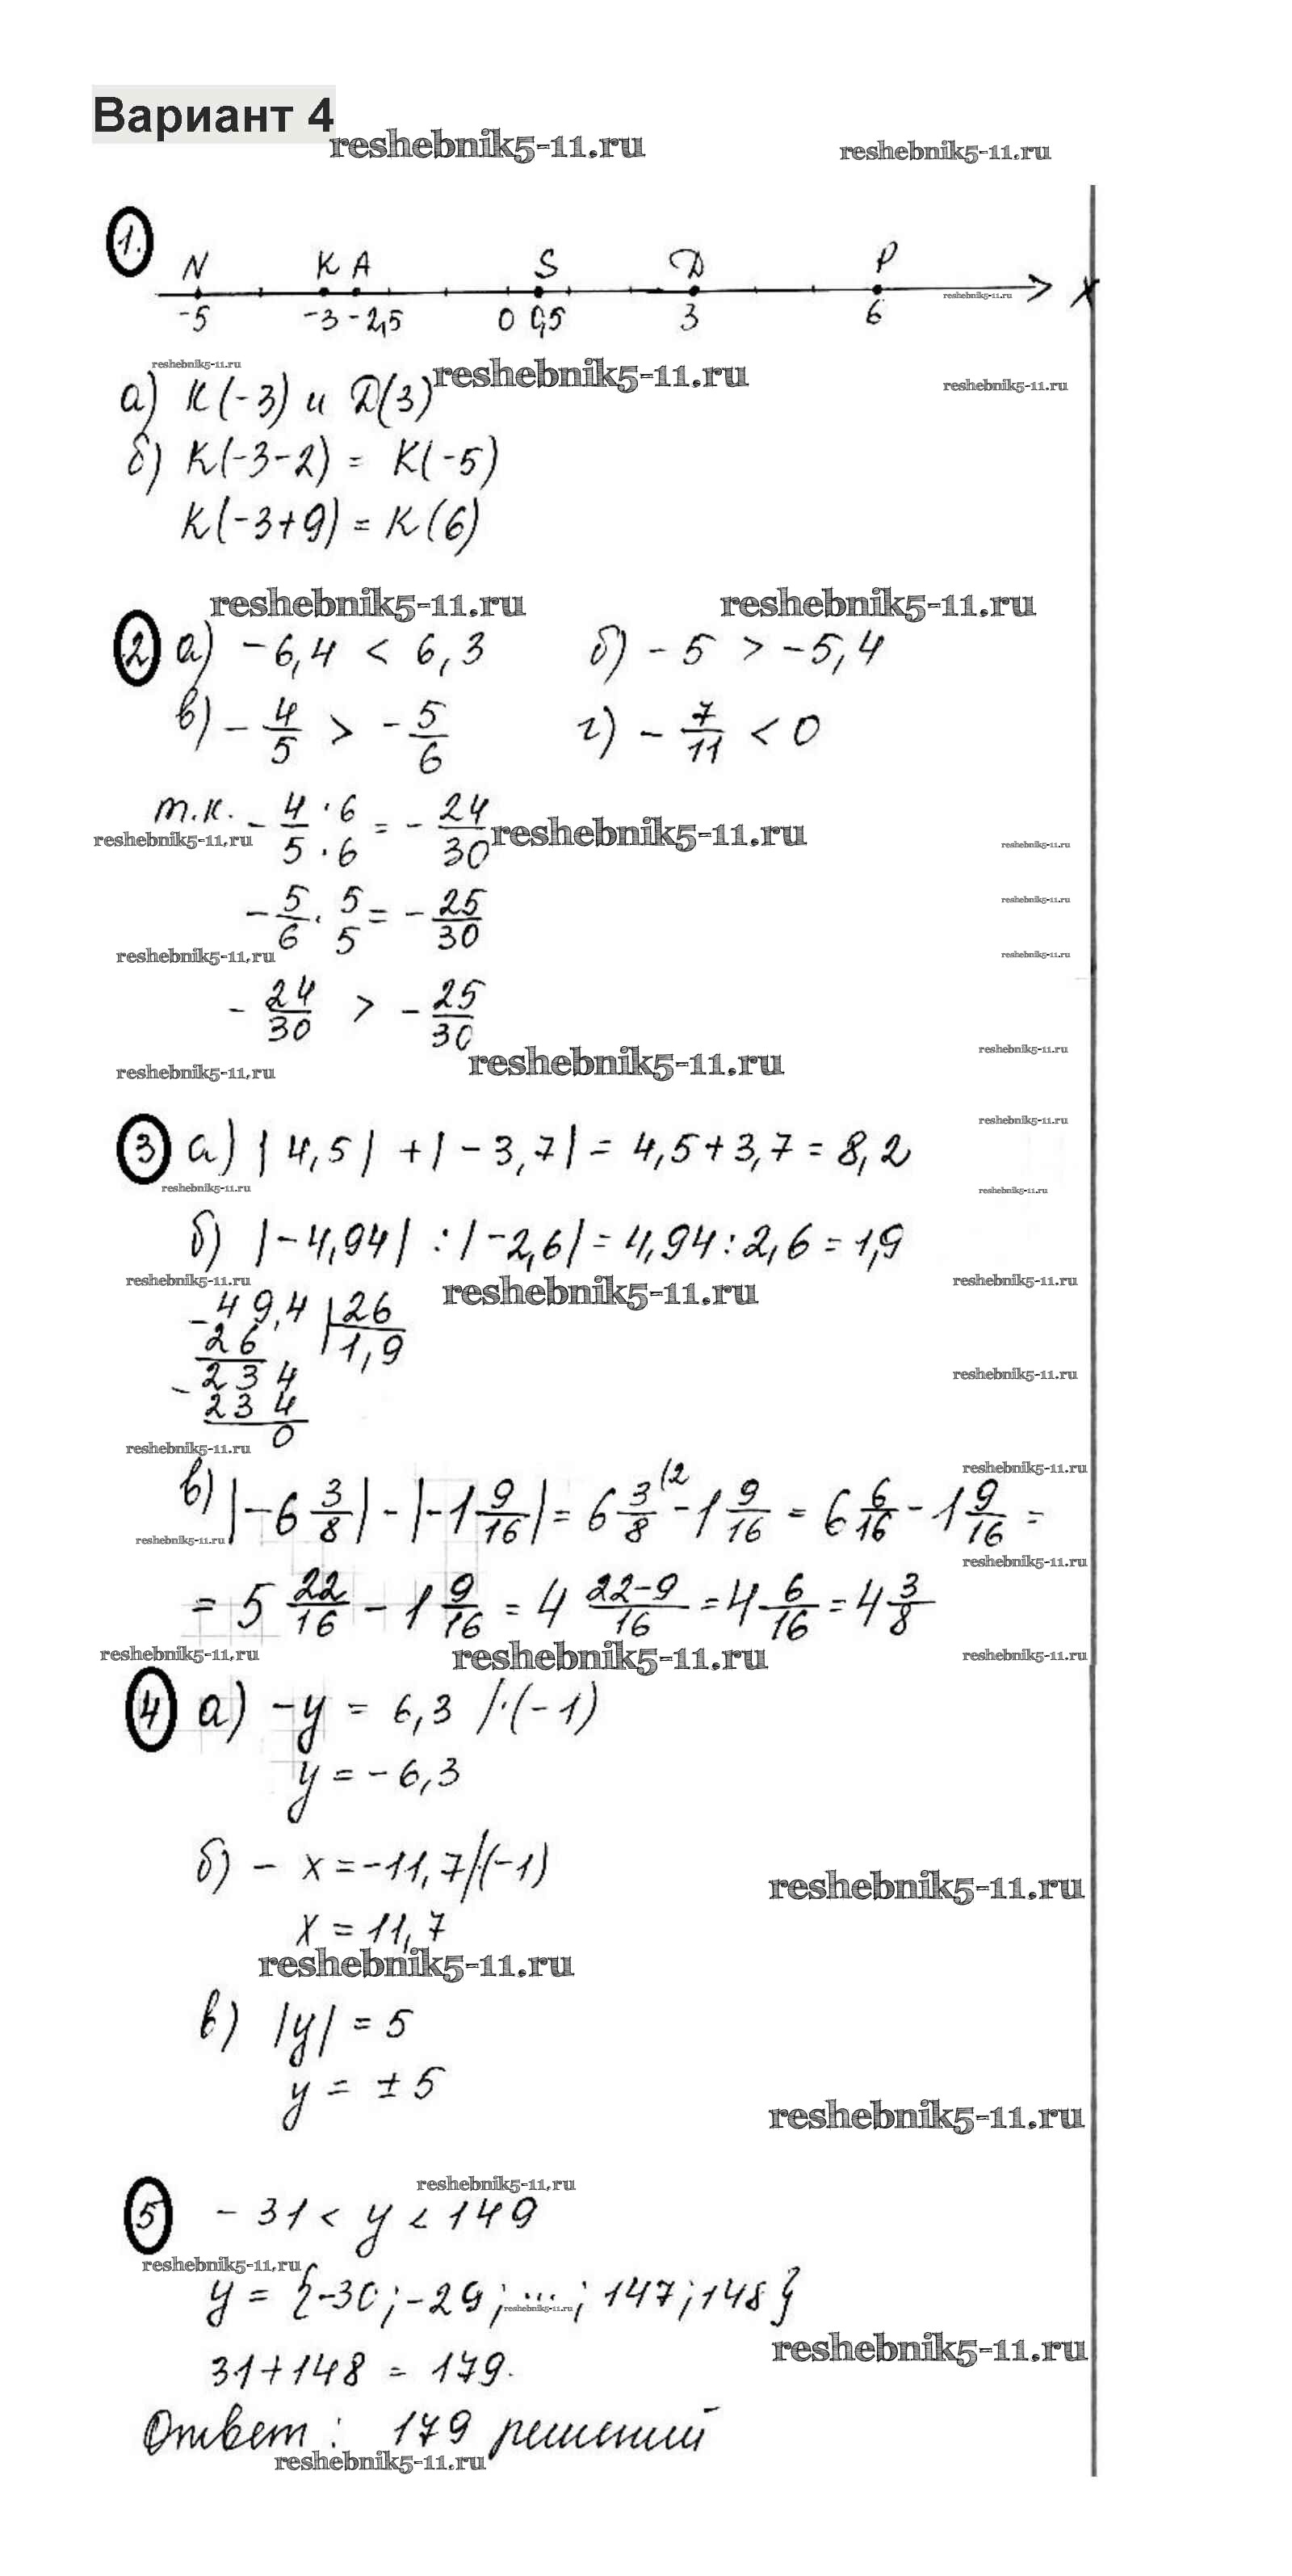 Вариант 4
reshebnik5-11.ru reshebnik5-11.ru
1.
N K A S D P
-5 -3 -2,5 0 0,5 3 6 x
reshebnik5-11.ru
reshebnik5-11.ru reshebnik5-11.ru reshebnik5-11.ru
а) K(-3) и D(3)
б) K(-3-2) = K(-5)
K(-3+9) = K(6)
reshebnik5-11.ru reshebnik5-11.ru
2 а) -6,4 < 6,3 б) -5 > -5,4
в) -4/5 > -5/6 г) -7/11 < 0
т.к. -4/5 · 6/6 = -24/30
reshebnik5-11.ru reshebnik5-11.ru reshebnik5-11.ru
-5/6 · 5/5 = -25/30
reshebnik5-11.ru
reshebnik5-11.ru reshebnik5-11.ru
-24/30 > -25/30
reshebnik5-11.ru reshebnik5-11.ru reshebnik5-11.ru
reshebnik5-11.ru
3 а) |4,5| + |-3,7| = 4,5+3,7 = 8,2
reshebnik5-11.ru reshebnik5-11.ru
б) |-4,94| : |-2,6| = 4,94 : 2,6 = 1,9
reshebnik5-11.ru reshebnik5-11.ru reshebnik5-11.ru
-49,4 | 26
26 | 1,9
-234
reshebnik5-11.ru
234
0
reshebnik5-11.ru reshebnik5-11.ru
в) |-6 3/8| - |-1 9/16| = 6 3/8 (2 - 1 9/16 = 6 6/16 - 1 9/16 =
reshebnik5-11.ru reshebnik5-11.ru
= 5 22/16 - 1 9/16 = 4 22-9/16 = 4 6/16 = 4 3/8
reshebnik5-11.ru reshebnik5-11.ru reshebnik5-11.ru
4 а) -y = 6,3 /·(-1)
y = -6,3
б) -x = -11,7 /·(-1)
reshebnik5-11.ru
x = 11,7
reshebnik5-11.ru
в) |y| = 5
y = ±5
reshebnik5-11.ru
reshebnik5-11.ru
5 -31 < y < 149
reshebnik5-11.ru
y = {-30; -29; ...; 147; 148}
reshebnik5-11.ru
reshebnik5-11.ru
31+148 = 179.
Ответ: 179 решений
reshebnik5-11.ru